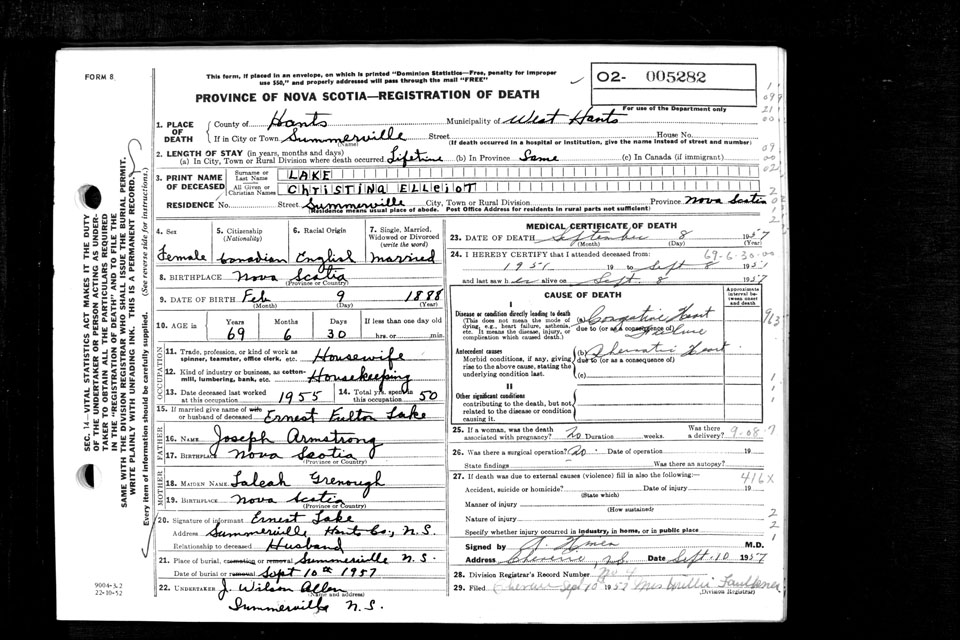 FORM 8
This form, if placed in an envelope, on which is printed "Dominion Statistics—Free, penalty for improper
use $50," and properly addressed will pass through the mail "FREE"
O2- 005282
For use of the Department only
PROVINCE OF NOVA SCOTIA—REGISTRATION OF DEATH
1. PLACE OF DEATH
County of Hants Municipality of West Hants
If in City or Town Summerville Street House No.
(Name) (If death occurred in a hospital or institution, give the name instead of street and number)
2. LENGTH OF STAY (in years, months and days)
(a) In City, Town or Rural Division where death occurred Lifetime (b) In Province Same (c) In Canada (if immigrant)
3. PRINT NAME OF DECEASED
Surname or Last Name LAKE
All Given or Christian Names CHRISTINA ELLEIOT
RESIDENCE No. Street Summerville City, Town or Rural Division Province Nova Scotia
(Residence means usual place of abode. Post Office Address for residents in rural parts not sufficient)
4. Sex Female
5. Citizenship (Nationality) Canadian
6. Racial Origin English
7. Single, Married, Widowed or Divorced (write the word) Married
8. BIRTHPLACE Nova Scotia
(Province or Country)
9. DATE OF BIRTH Feb 9 1888
(Month) (Day) (Year)
10. AGE in Years Months Days If less than one day old
69 6 30 hrs. or min.
OCCUPATION
11. Trade, profession, or kind of work as spinner, teamster, office clerk, etc. Housewife
12. Kind of industry or business, as cotton-mill, lumbering, bank, etc. Housekeeping
13. Date deceased last worked at this occupation 1955 14. Total yrs. spent in this occupation 50
15. If married give name of wife or husband of deceased Ernest Fulton Lake
FATHER
16. NAME Joseph Armstrong
17. BIRTHPLACE Nova Scotia
(Province or Country)
MOTHER
18. MAIDEN NAME Saleah Grenough
19. BIRTHPLACE Nova Scotia
(Province or Country)
20. Signature of informant Ernest Lake
Address Summerville Hants Co., N.S.
Relationship to deceased Husband
21. Place of burial, cremation or removal Summerville N.S.
Date of burial or removal Sept 10th 1957
22. UNDERTAKER J. Wilson Allen
(Name and address)
Summerville N.S.
MEDICAL CERTIFICATE OF DEATH
23. DATE OF DEATH September 8 1957
(Month) (Day) (Year)
24. I HEREBY CERTIFY that I attended deceased from: 69-6-30-00
1951 19 to Sept 8 1957
and last saw her alive on Sept. 8 1957
CAUSE OF DEATH
Approximate interval between onset and death
I
Disease or condition directly leading to death
(This does not mean the mode of dying, e.g., heart failure, asthenia, etc. It means the disease, injury, or complication which caused death.)
(a) Congestive Heart Failure
due to (or as a consequence of)
Antecedent causes
Morbid conditions, if any, giving rise to the above cause, stating the underlying condition last.
(b) Rheumatic Heart
due to (or as a consequence of)
(c)
II
Other significant conditions
contributing to the death, but not related to the disease or condition causing it.
25. If a woman, was the death associated with pregnancy? No Duration weeks. Was there a delivery? 9-08-7
26. Was there a surgical operation? No Date of operation 19
State findings Was there an autopsy?
27. If death was due to external causes (violence) fill in also the following:— 416X
Accident, suicide or homicide? Date of injury 19
(State which)
Manner of injury
(How sustained)
Nature of injury
Specify whether injury occurred in industry, in home, or in public place
Signed by M.D.
Address Cheverie, N.S. Date Sept. 10 1957
28. Division Registrar's Record Number No 4
29. Filed Sept 10 1957 Mrs Willie Faulkner
(Division Registrar)
9004-3-2
22-10-52
SEC. 14—VITAL STATISTICS ACT MAKES IT THE DUTY
OF THE UNDERTAKER OR PERSON ACTING AS UNDERTAKER TO OBTAIN ALL THE PARTICULARS REQUIRED
IN THE "REGISTRATION OF DEATH" AND TO FILE THE
SAME WITH THE DIVISION REGISTRAR WHO SHALL ISSUE THE BURIAL PERMIT.
WRITE PLAINLY WITH UNFADING INK. THIS IS A PERMANENT RECORD.
Every item of information should be carefully supplied. (See reverse side for instructions.)